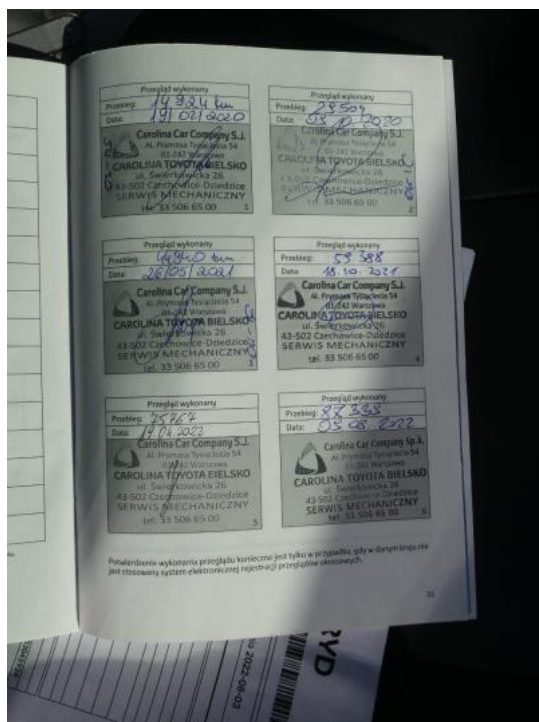 Przegląd wykonany
Przebieg: 14 924 km
Data: 19/02/2020
Carolina Car Company S.J.
Al. Prymasa Tysiąclecia 54
01-242 Warszawa
CAROLINA TOYOTA BIELSKO
ul. Świerkowicka 26
43-502 Czechowice-Dziedzice
SERWIS MECHANICZNY
tel. 33 506 65 00
1
Przegląd wykonany
Przebieg: 29504
Data: 09.10.2020
Carolina Car Company S.J.
Al. Prymasa Tysiąclecia 54
01-242 Warszawa
CAROLINA TOYOTA BIELSKO
ul. Świerkowicka 26
43-502 Czechowice-Dziedzice
SERWIS MECHANICZNY
tel. 33 506 65 00
2
Przegląd wykonany
Przebieg: 44940 km
Data: 26/05/2021
Carolina Car Company S.J.
Al. Prymasa Tysiąclecia 54
01-242 Warszawa
CAROLINA TOYOTA BIELSKO
ul. Świerkowicka 26
43-502 Czechowice-Dziedzice
SERWIS MECHANICZNY
tel. 33 506 65 00
3
Przegląd wykonany
Przebieg: 59 388
Data: 18.10.2021
Carolina Car Company S.J.
Al. Prymasa Tysiąclecia 54
01-242 Warszawa
CAROLINA TOYOTA BIELSKO
ul. Świerkowicka 26
43-502 Czechowice-Dziedzice
SERWIS MECHANICZNY
tel. 33 506 65 00
4
Przegląd wykonany
Przebieg: 75767
Data: 19.04.2022
Carolina Car Company S.J.
Al. Prymasa Tysiąclecia 54
01-242 Warszawa
CAROLINA TOYOTA BIELSKO
ul. Świerkowicka 26
43-502 Czechowice-Dziedzice
SERWIS MECHANICZNY
tel. 33 506 65 00
5
Przegląd wykonany
Przebieg:
Data: 03 08.2022
Carolina Car Company Sp.k.
Al. Prymasa Tysiąclecia 54
01-242 Warszawa
CAROLINA TOYOTA BIELSKO
ul. Świerkowicka 26
43-502 Czechowice-Dziedzice
SERWIS MECHANICZNY
tel. 33 506 65 00
6
Potwierdzenie wykonania przeglądu konieczne jest tylko w przypadku, gdy w danym kraju nie
jest stosowany system elektronicznej rejestracji przeglądów okresowych.
31
RYD
2022-08-03